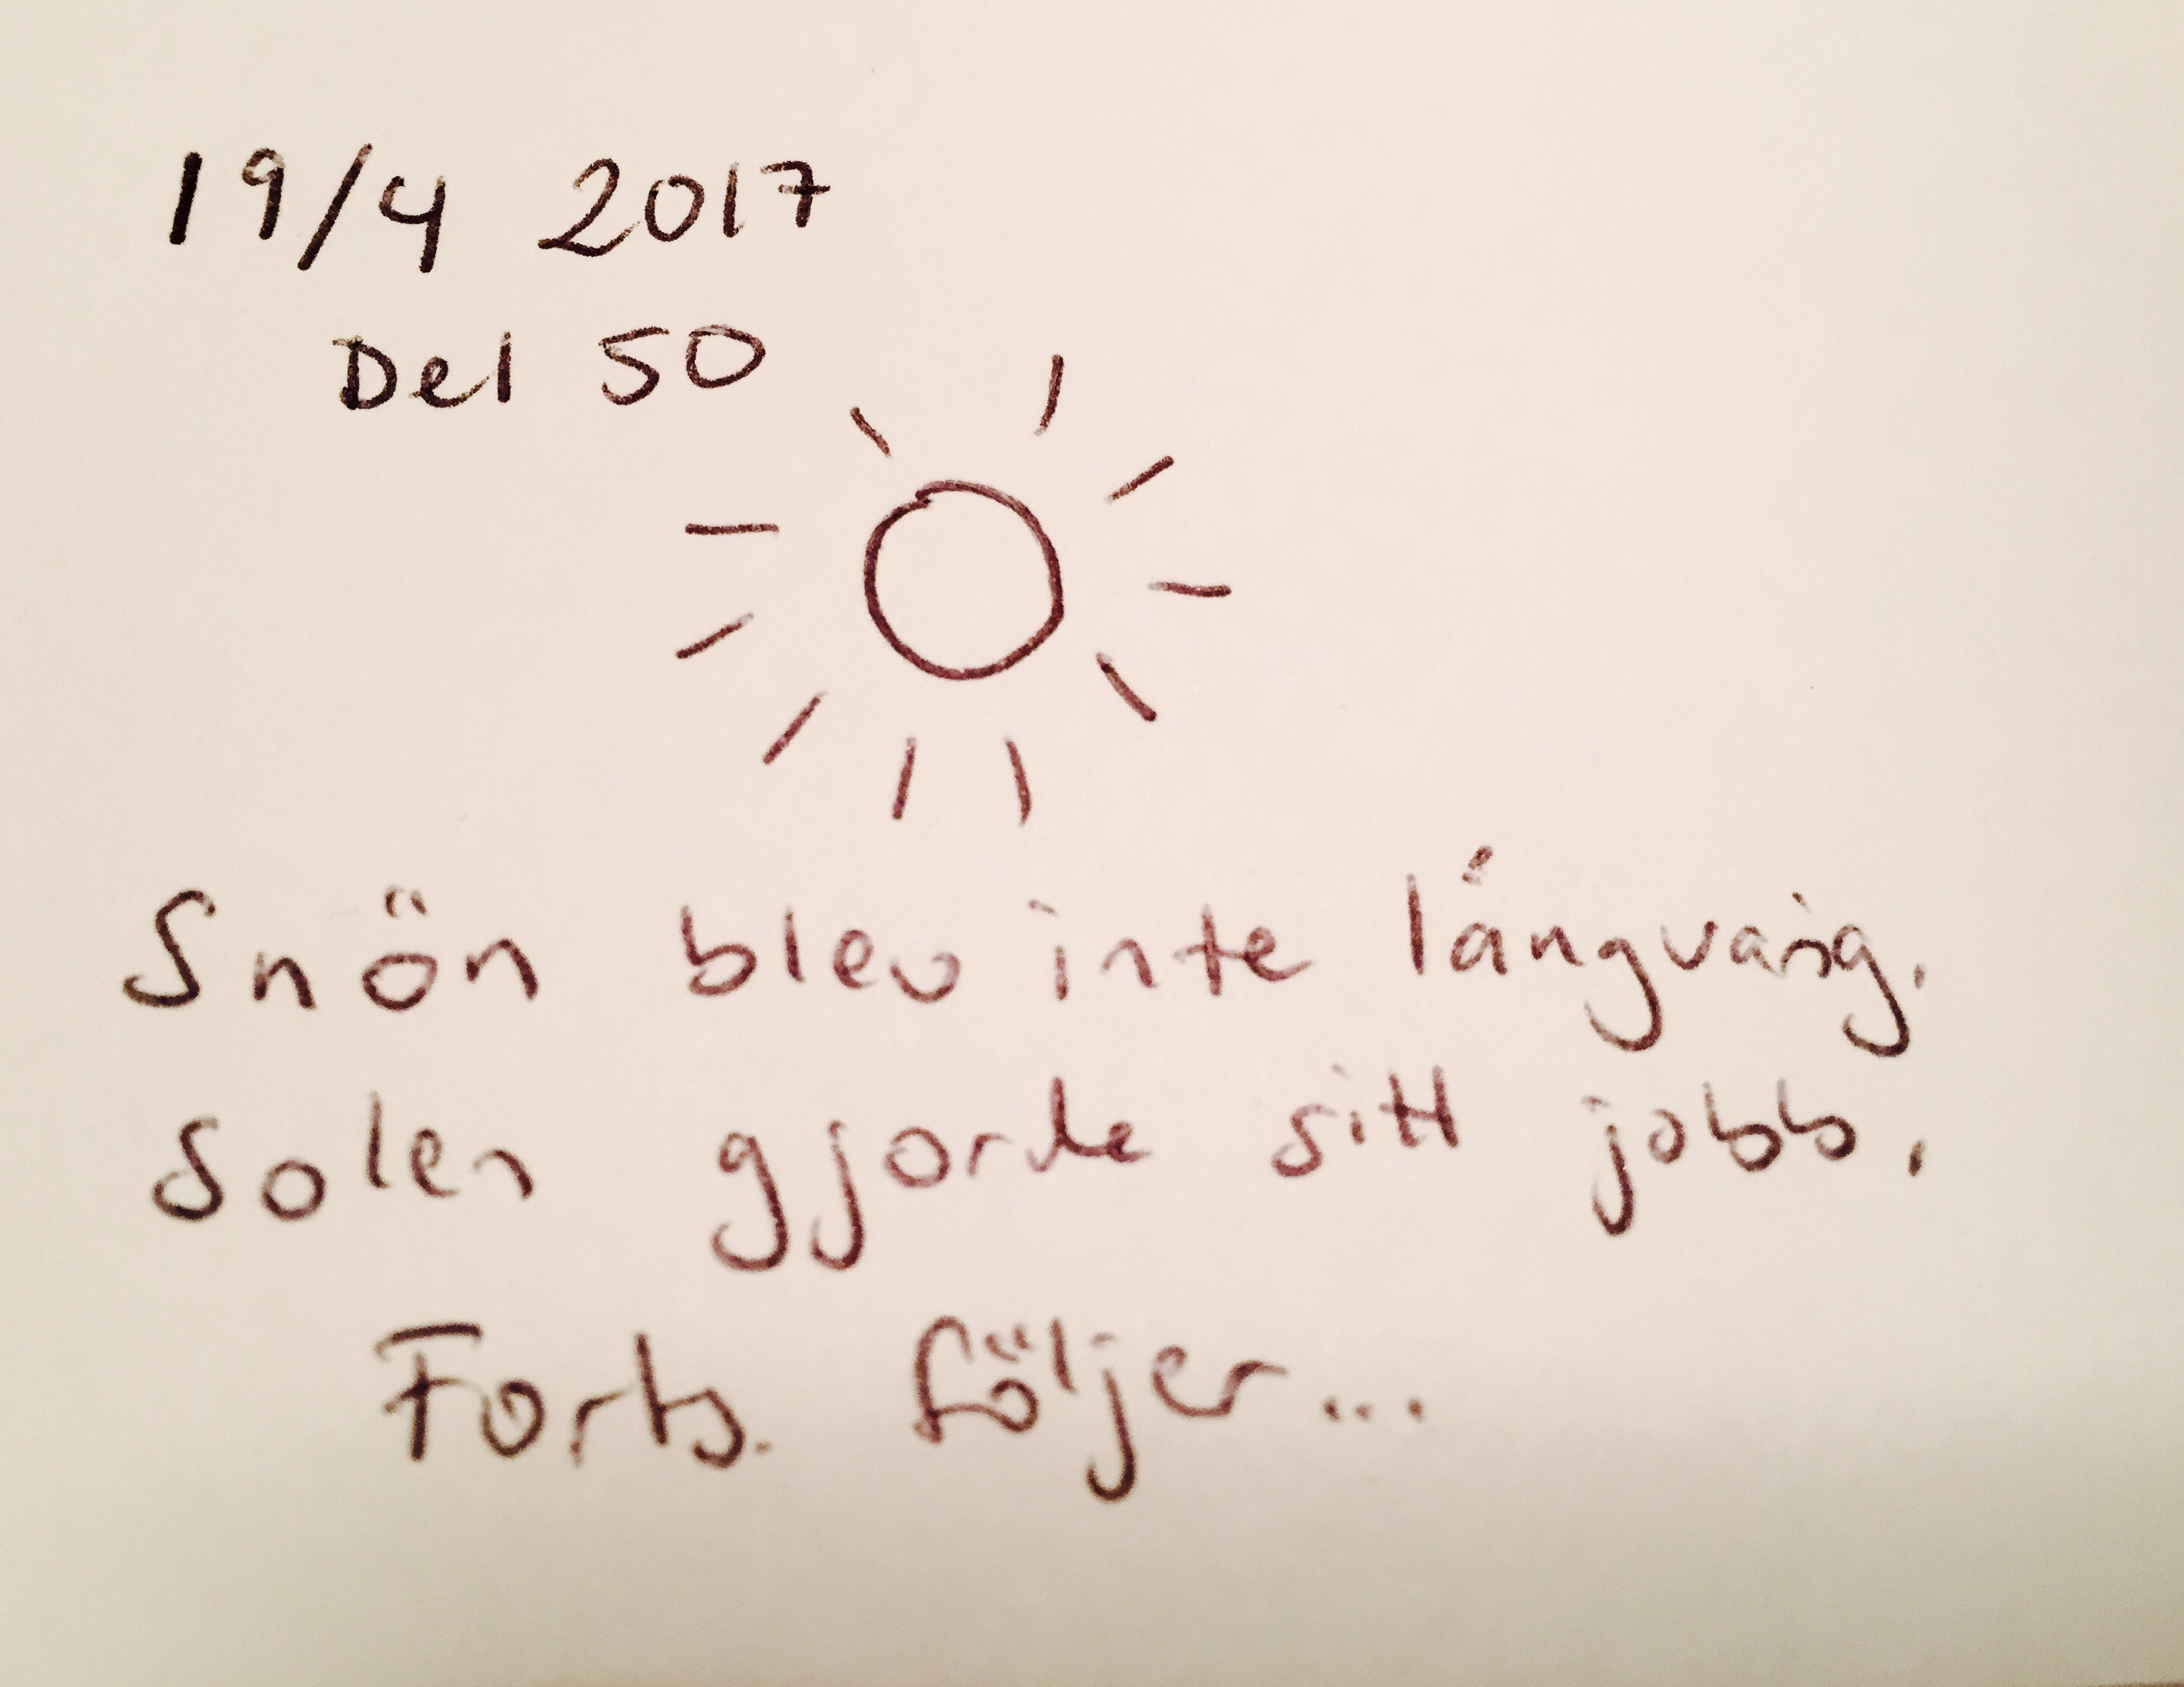 19/4 2017
Del 50
Snön blev inte långvarig.
Solen gjorde sitt jobb.
Forts. följer...